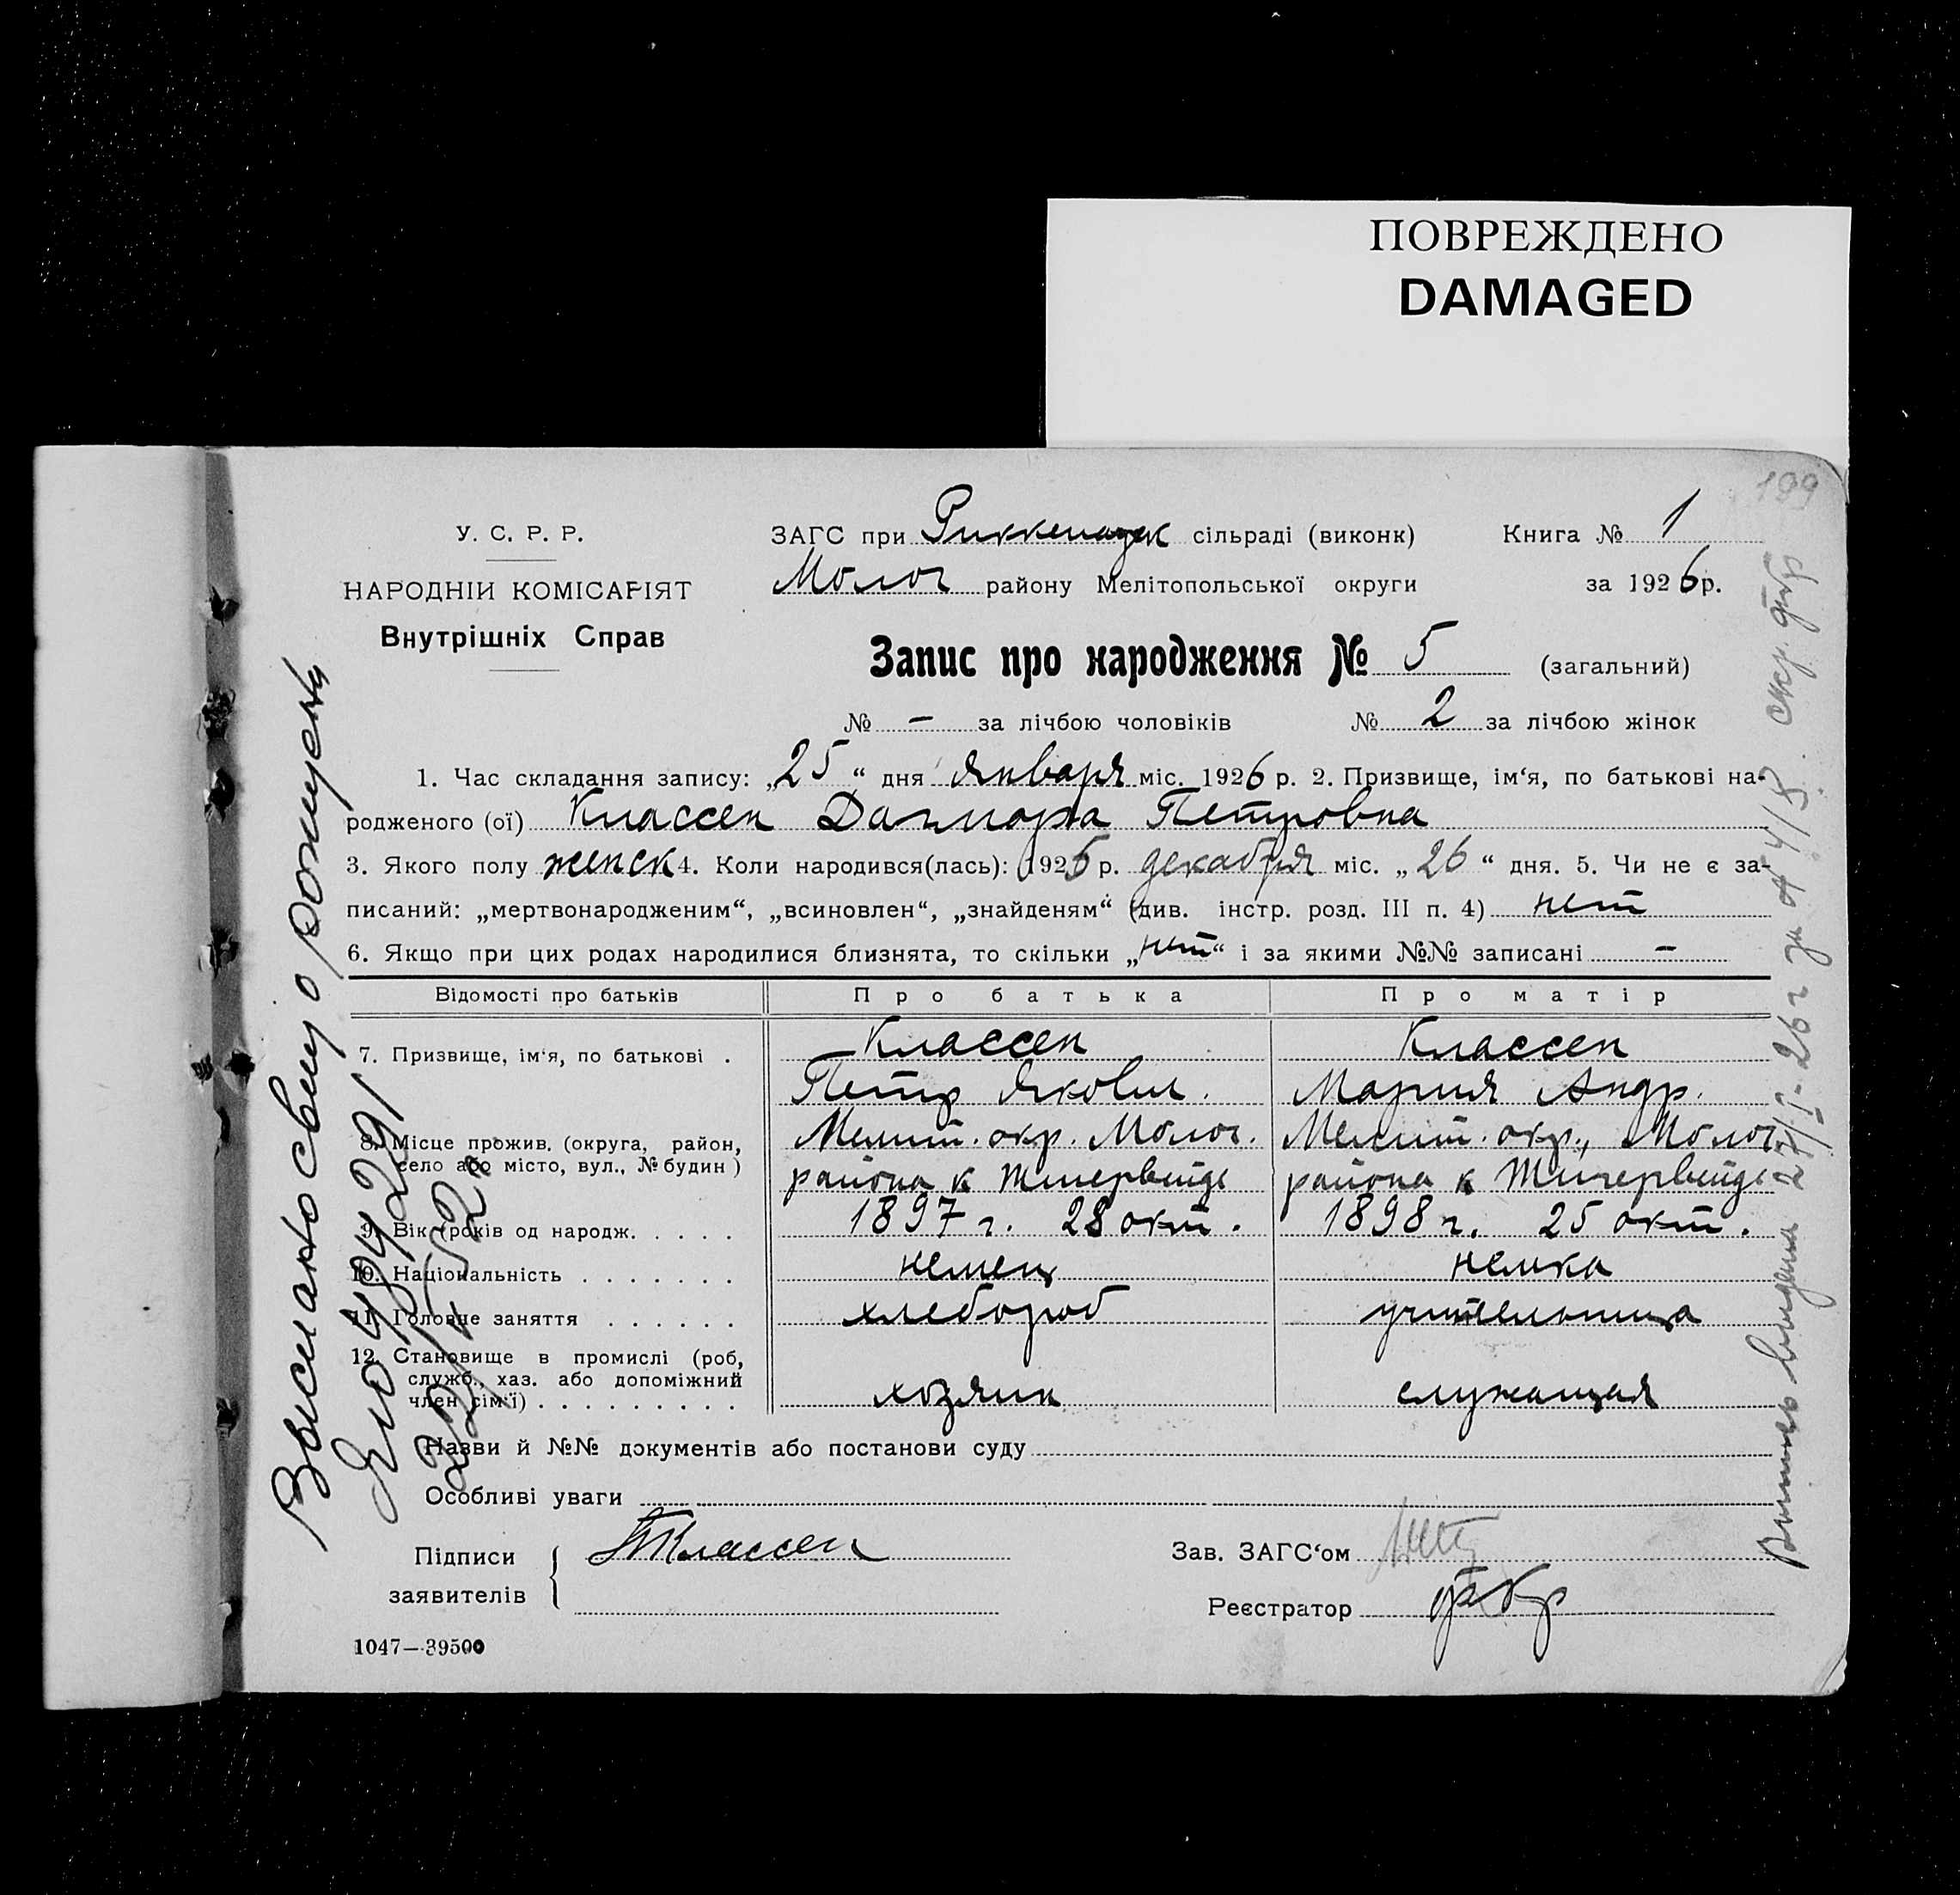 ПОВРЕЖДЕНО
DAMAGED
199
У. С. Р. Р.
НАРОДНІЙ КОМІСАРІЯТ
Внутрішніх Справ
ЗАГС при Риккенауск сільраді (виконк) Книга № 1
Молоч району Мелітопольської округи за 1926 р.
Запис про народження № 5 (загальний)
№ – за лічбою чоловіків № 2 за лічбою жінок
1. Час складання запису: „25“ дня января міс. 1926 р. 2. Призвище, ім‘я, по батькові на-
родженого (ої) Классен Дагмора Петровна
3. Якого полу женск 4. Коли народився(лась): 1925 р. декабря міс. „26“ дня. 5. Чи не є за-
писаний: „мертвонародженим“, „всиновлен“, „знайденям“ (див. інстр. розд. III п. 4) нет
6. Якщо при цих родах народилися близнята, то скільки „нет“ і за якими №№ записані –
Відомості про батьків Про батька Про матір
7. Призвище, ім‘я, по батькові . Классен Классен
Петр Яковл. Мария Андр.
8. Місце прожив. (округа, район, Мелит. окр. Молоч. Мелит. окр., Молоч.
село або місто, вул., № будин) района к района к
9. Вік (років од народж. . . . . 1897 г. 28 окт. 1898 г. 25 окт.
10. Національність . . . . . . . немец немка
11. Головне заняття . . . . . . хлебороб учительница
12. Становище в промислі (роб,
служб., хаз. або допоміжний
член сім‘ї) . . . . . . . . . хозяин служащая
Назви й №№ документів або постанови суду
Особливі уваги
Підписи
заявителів
П Классен
Зав. ЗАГС‘ом
Реєстратор
1047—39500
Выслано свид о рожден
ЯЮ 494291
Выпись выдана 27/I-26 г за № 4/8.